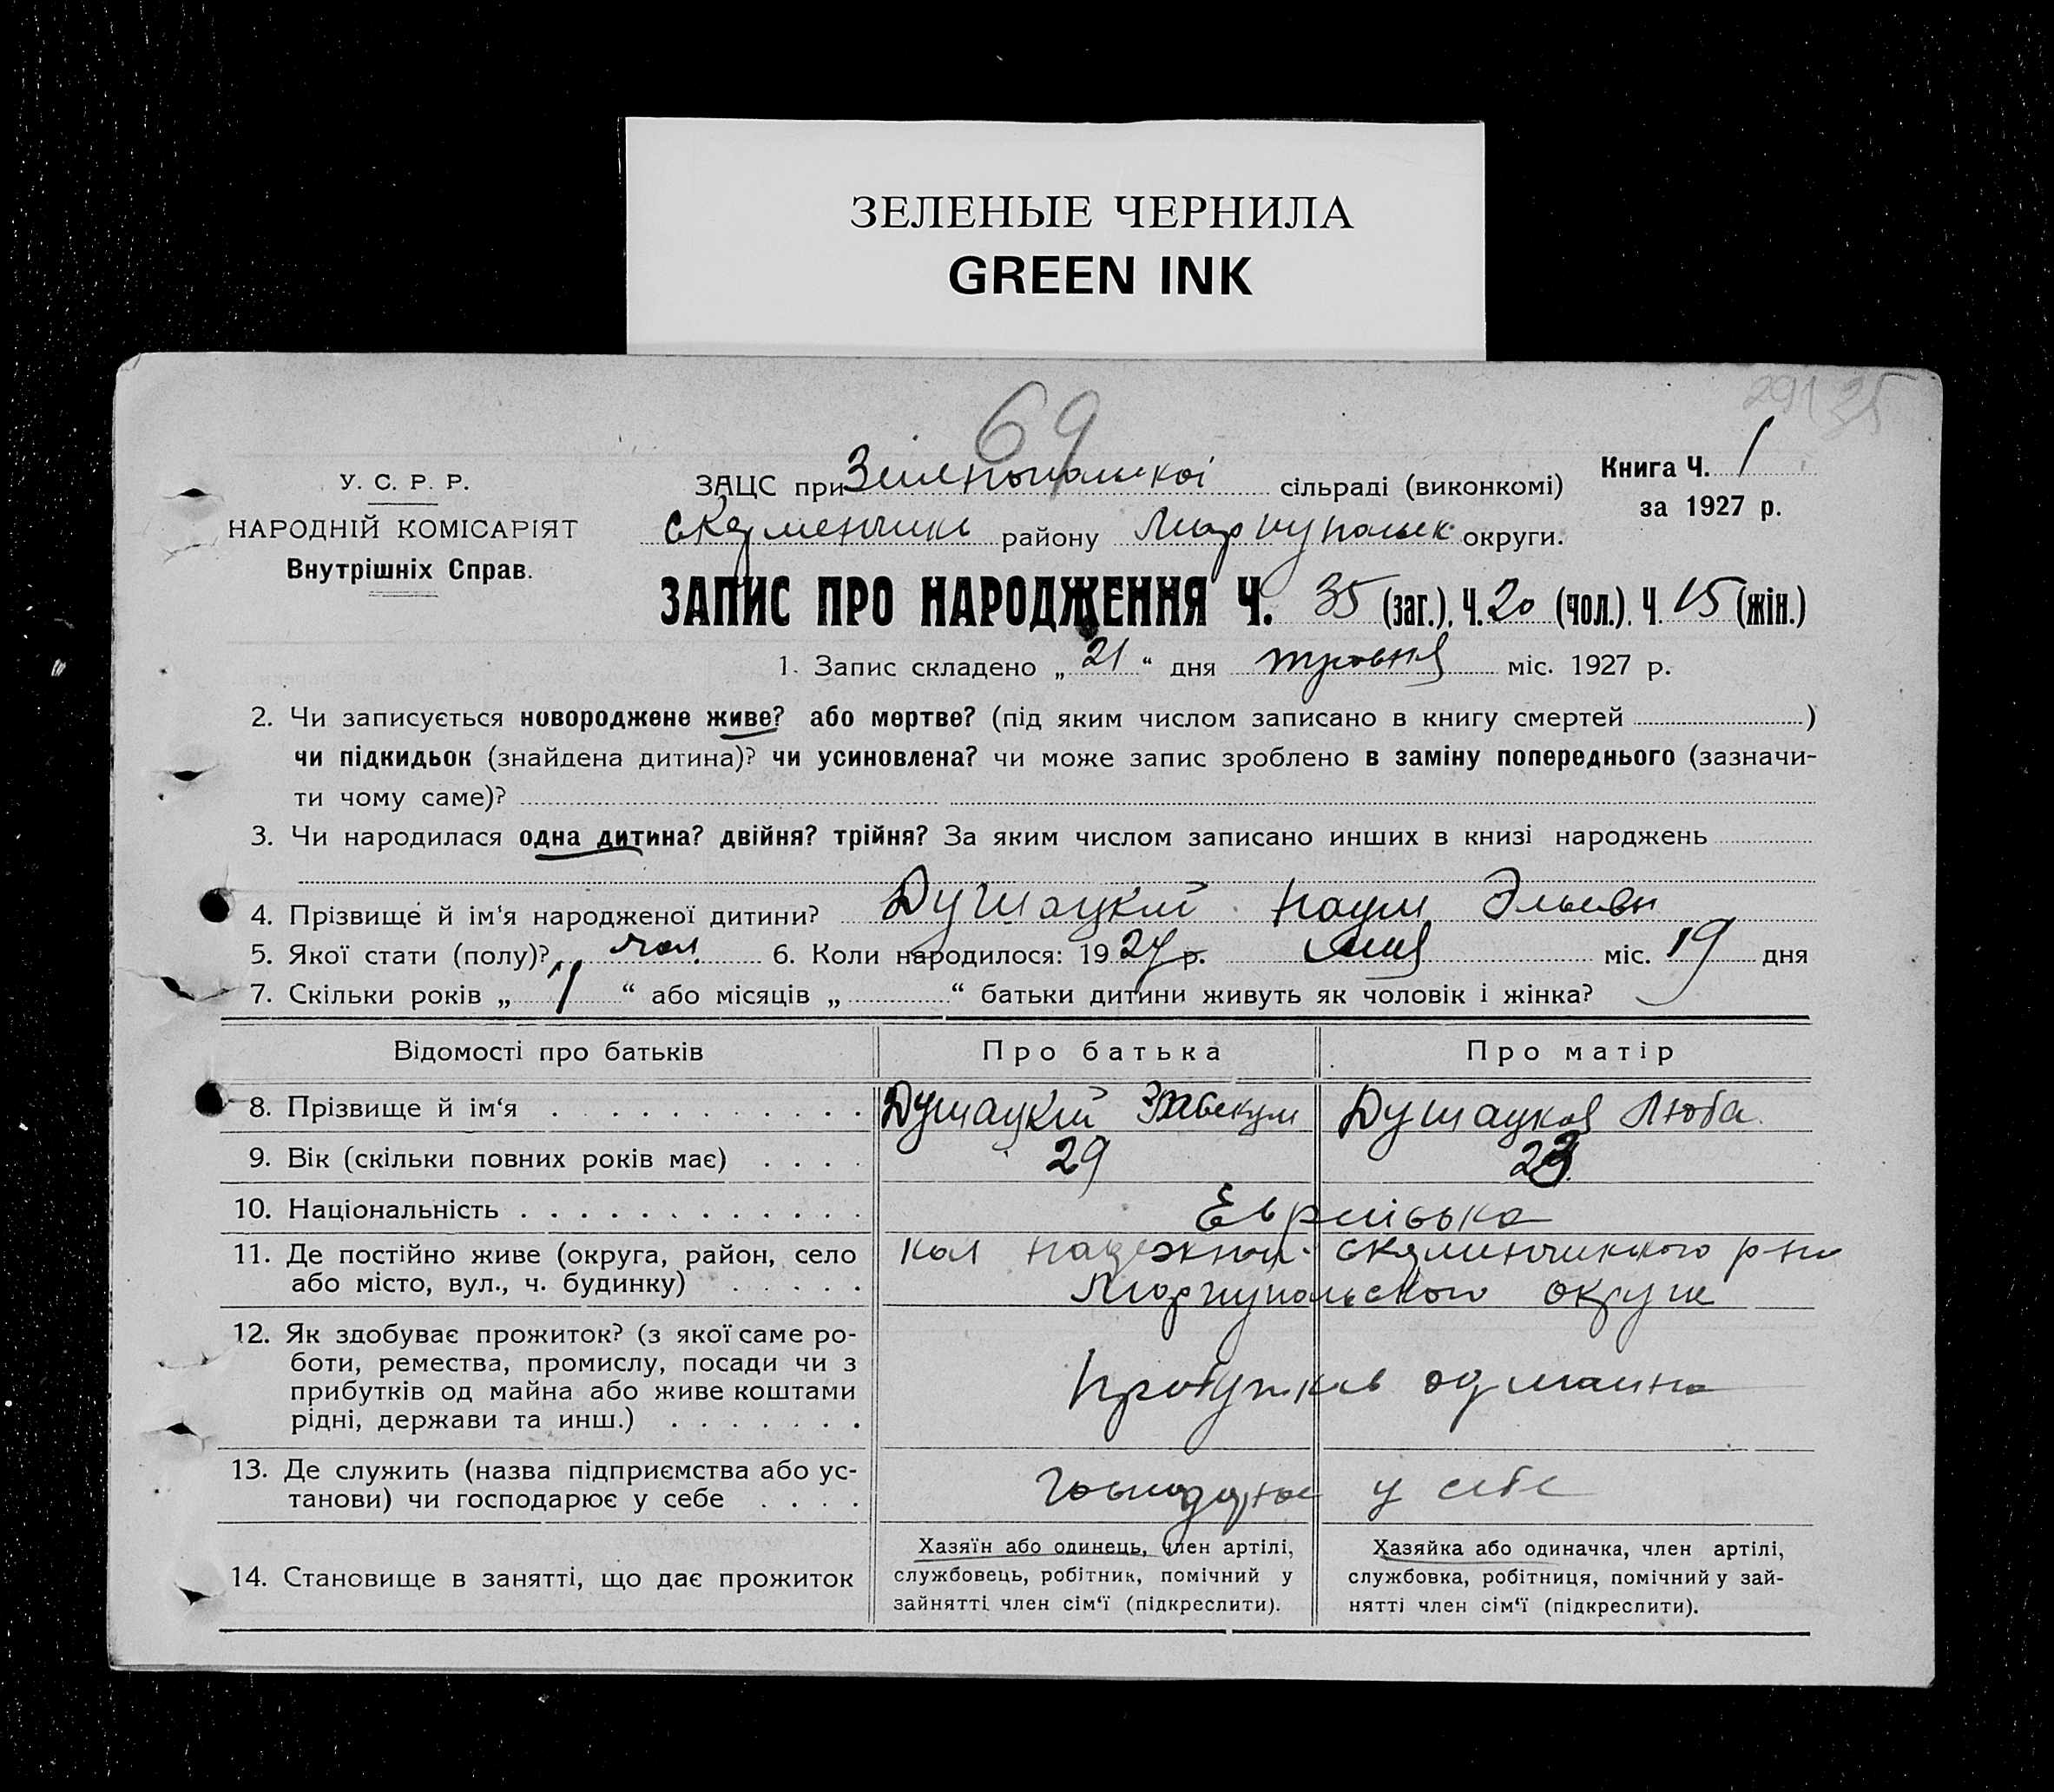 ЗЕЛЕНЫЕ ЧЕРНИЛА
GREEN INK
69
291 35
У. С. Р. Р.
НАРОДНІЙ КОМІСАРІЯТ
Внутрішніх Справ.
ЗАЦС при Зеленопольскоі сільраді (виконкомі)
району Маріупольск округи.
Книга Ч. 1
за 1927 р.
ЗАПИС ПРО НАРОДЖЕННЯ Ч. 35 (заг.), Ч. 20 (чол.). Ч. 15 (жін.)
1. Запис складено „ 21 “ дня травня міс. 1927 р.
2. Чи записується новороджене живе? або мертве? (під яким числом записано в книгу смертей )
чи підкидьок (знайдена дитина)? чи усиновлена? чи може запис зроблено в заміну попереднього (зазначи-
ти чому саме)?
3. Чи народилася одна дитина? двійня? трійня? За яким числом записано инших в книзі народжень
4. Прізвище й ім‘я народженої дитини? Душацкій Наум
5. Якої стати (полу)? чол. 6. Коли народилося: 1927 р. мая міс. 19 дня
7. Скільки років „ 1 “ або місяців „ “ батьки дитини живуть як чоловік і жінка?
Відомості про батьків Про батька Про матір
8. Прізвище й ім‘я Душацкій Душацкая Люба.
9. Вік (скільки повних років має) 29 23
10. Національність Еврейська
11. Де постійно живе (округа, район, село кол р-на
або місто, вул., ч. будинку) Маріупольского округи
12. Як здобуває прожиток? (з якої саме ро-
боти, ремества, промислу, посади чи з
прибутків од майна або живе коштами од маина
рідні, держави та инш.)
13. Де служить (назва підприємства або ус-
танови) чи господарює у себе господарює у себе
14. Становище в занятті, що дає прожиток
Хазяїн або одинець, член артілі,
службовець, робітник, помічний у
зайнятті член сім‘ї (підкреслити).
Хазяйка або одиначка, член артілі,
службовка, робітниця, помічний у зай-
нятті член сім‘ї (підкреслити).